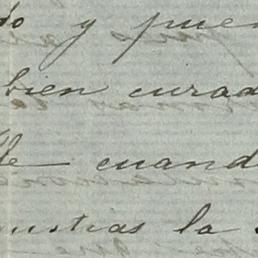 do y pue
bien curad
lle cuand
ustias la